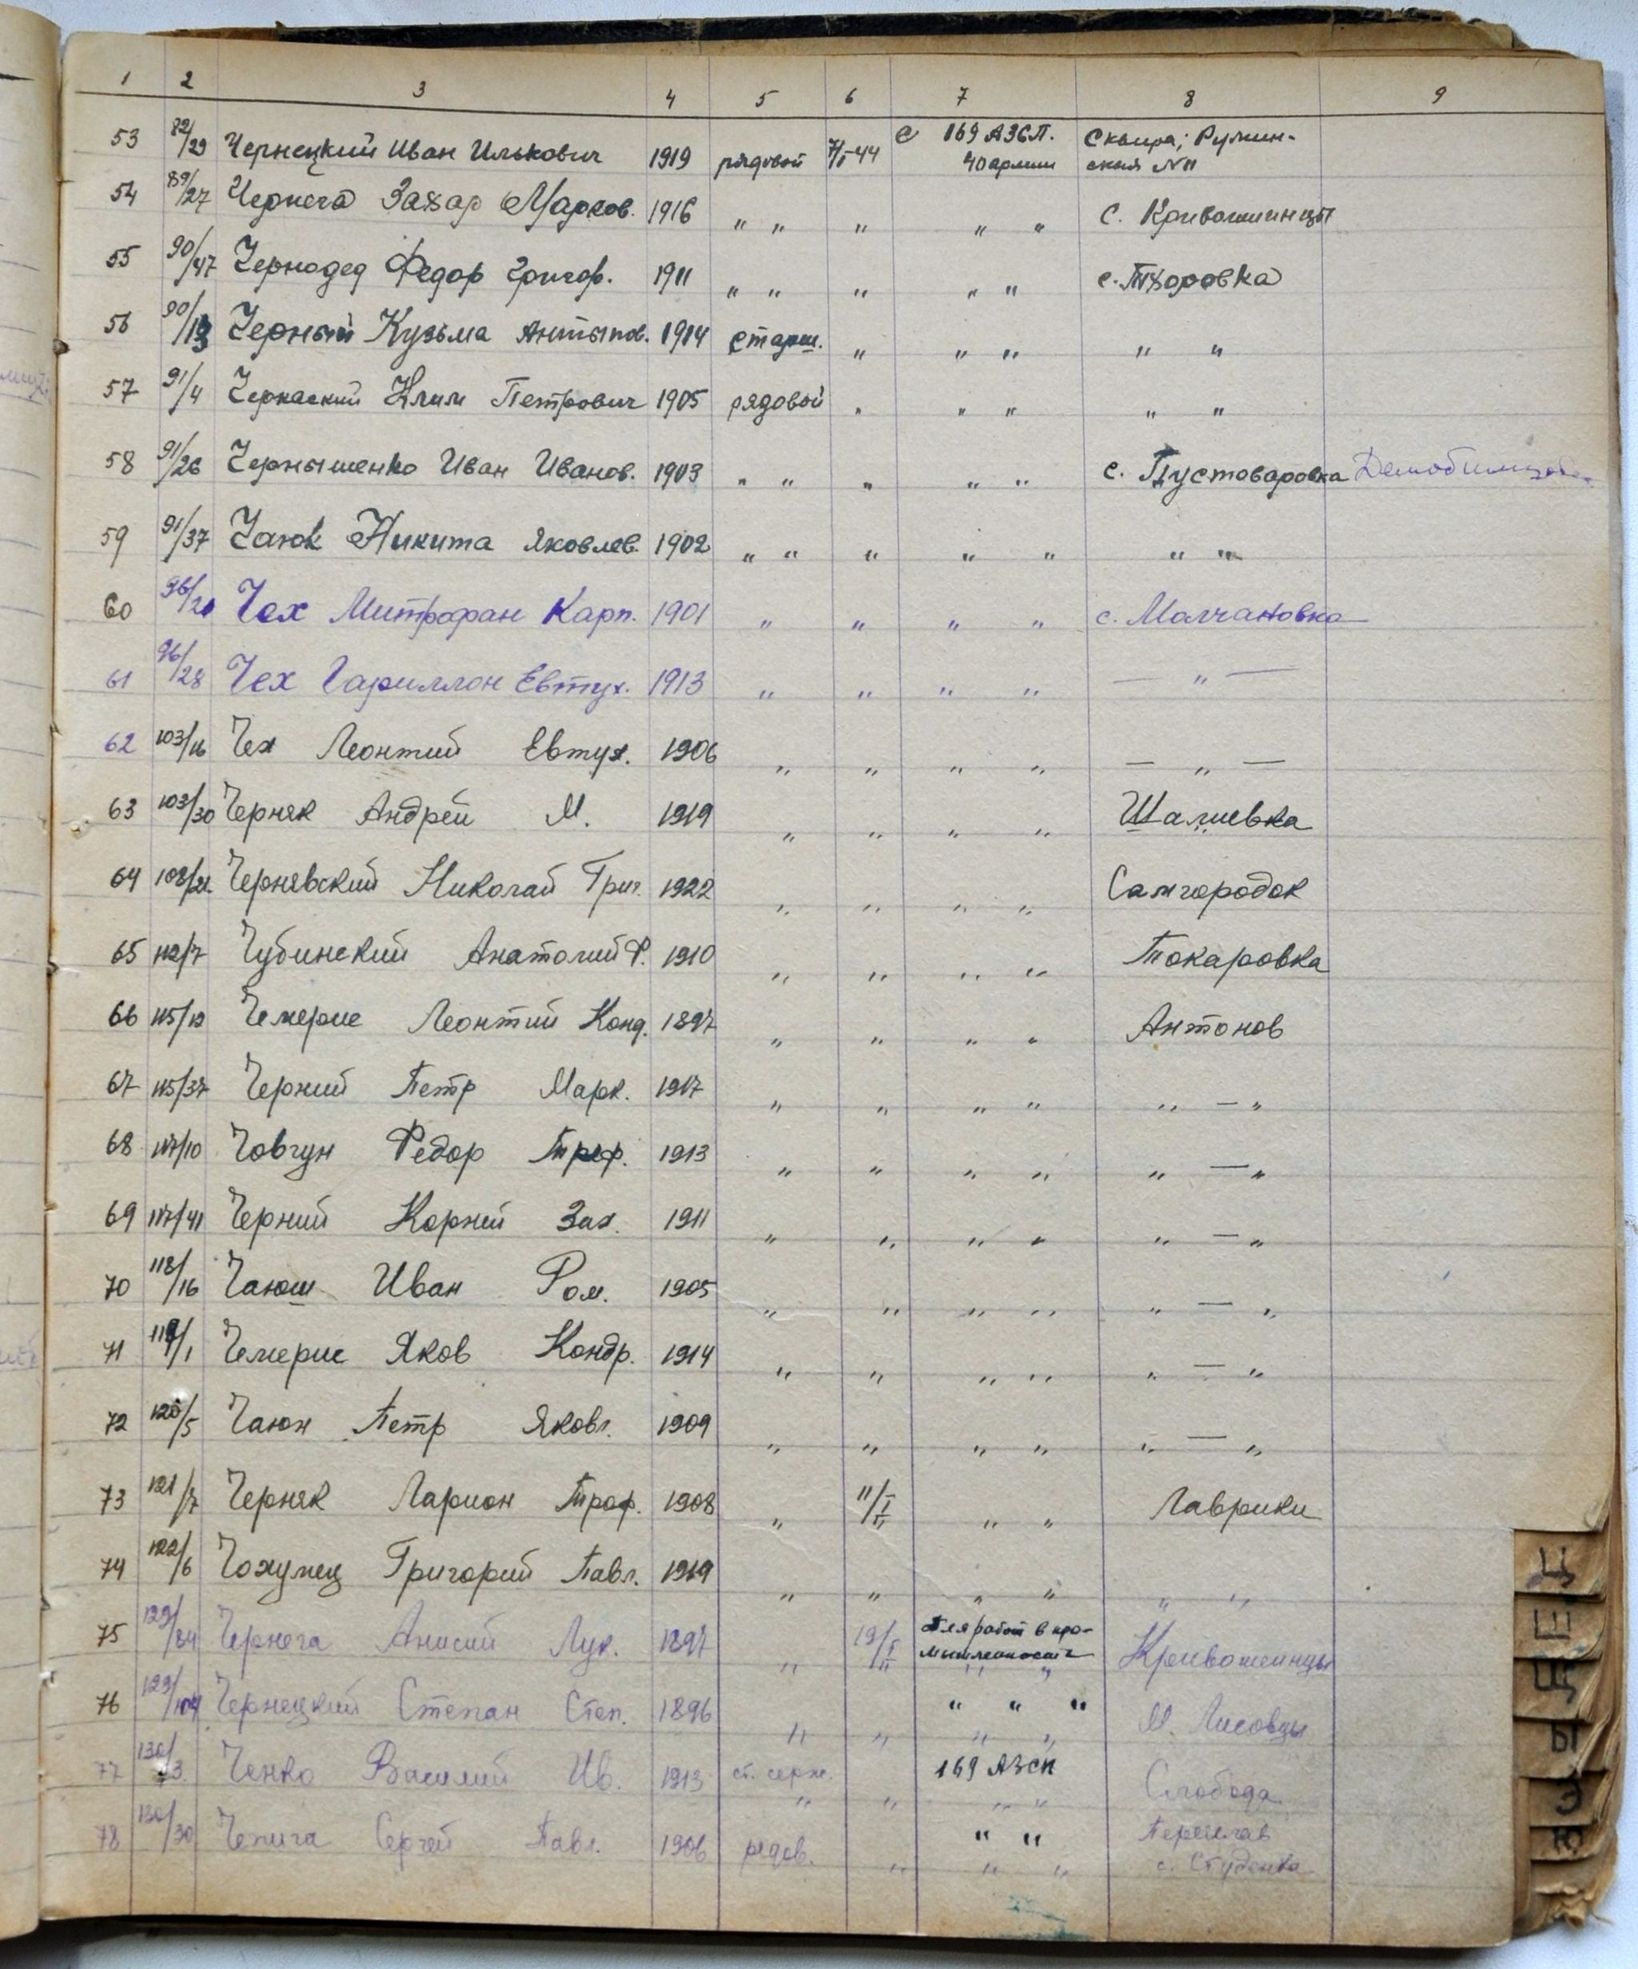 1 2 3 4 5 6 7 8 9
53 82/29 Чернецкий Иван Илькович 1919 рядовой 7/I-44 с 169 АЗСП. 40 армии Сквира; Ружин-
ская №11
54 89/27 Чернега Захар Марков. 1916 " " " " " с. Кривошиинцы
55 90/47 Чернодед Федор Григор. 1911 " " " " " с. Тхоровка
56 90/13 Черный Кузьма Антыпов. 1914 старш. " " " " "
57 91/4 Черкаский Клим Петрович 1905 рядовой " " " " "
58 91/26 Чернышенко Иван Иванов. 1903 " " " " " с. Пустоваровка
59 91/37 Чаюк Никита Яковлев. 1902 " " " " " " "
60 96/21 Чех Митрофан Карп. 1901 " " " " с. Малчановка
61 96/28 Чех Гариллон Евтух. 1913 " " " " — " —
62 103/16 Чех Леонтий Евтух. 1906 " " " " — " —
63 103/30 Черняк Андрей М. 1919 " " " " Шалиевка
64 108/21 Чернявский Николай Григ. 1922 " " " " Самгородок
65 112/7 Чубинский Анатолий Ф. 1910 " " " " Токаровка
66 115/12 Чемерис Леонтий Конд. 1897 " " " " Антонов
67 115/37 Черний Петр Марк. 1917 " " " " " — "
68 117/10 Човгун Федор Троф. 1913 " " " " " — "
69 117/41 Черний Корней Зах. 1911 " " " " " — "
70 118/16 Чаюш Иван Ром. 1905 " " " " " — "
71 119/1 Чемерис Яков Кондр. 1914 " " " " " — "
72 120/5 Чаюн Петр Яковл. 1909 " " " " " — "
73 121/7 Черняк Ларион Троф. 1908 " 11/I " " " Лаврики
74 122/6 Чохунец Григорий Павл. 1919 " " " " " "
75 129/84 Чернега Анисий Лук. 1897 " 19/I " Для работ в про-
мышленность " " Кривошеинцы
76 129/104 Чернецкий Степан Степ. 1896 " " " " " " " М. Лисовцы
77 130/3 Ченко Василий Ив. 1913 ст. серж. " " 169 АЗСП " " Слобода
78 130/30 Чепига Сергей Павл. 1906 рядов. " " " " " Переяслав
с. Студенка
Ц
Ш
Щ
Ы
Э
Ю